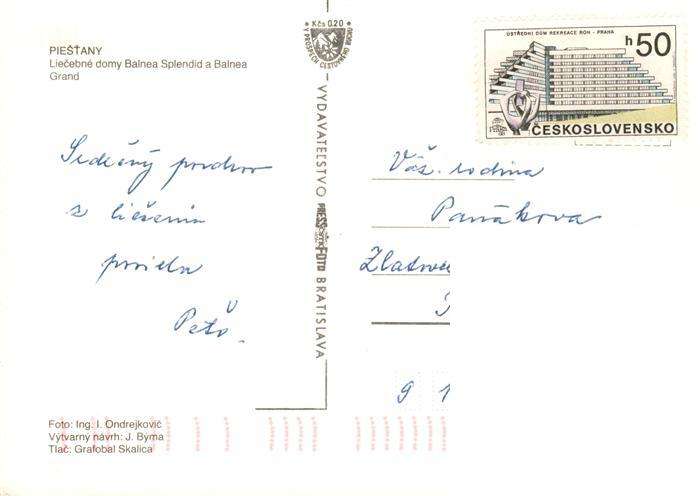 PIEŠŤANY
Liečebné domy Balnea Splendid a Balnea
Grand
Kčs 0,20
V PROSPECH CESTOVNÉHO RUCHU
ÚSTŘEDNÍ DŮM REKREACE ROH - PRAHA
h 50
ČESKOSLOVENSKO
VYDAVATEĽSTVO PRESSFOTO BRATISLAVA
Srdečný pozdrav
z liečenia
posiela
Peťo.
Váž. rodina
Panákova
9 1
Foto: Ing. I. Ondrejkovič
Výtvarný návrh: J. Býma
Tlač: Grafobal Skalica